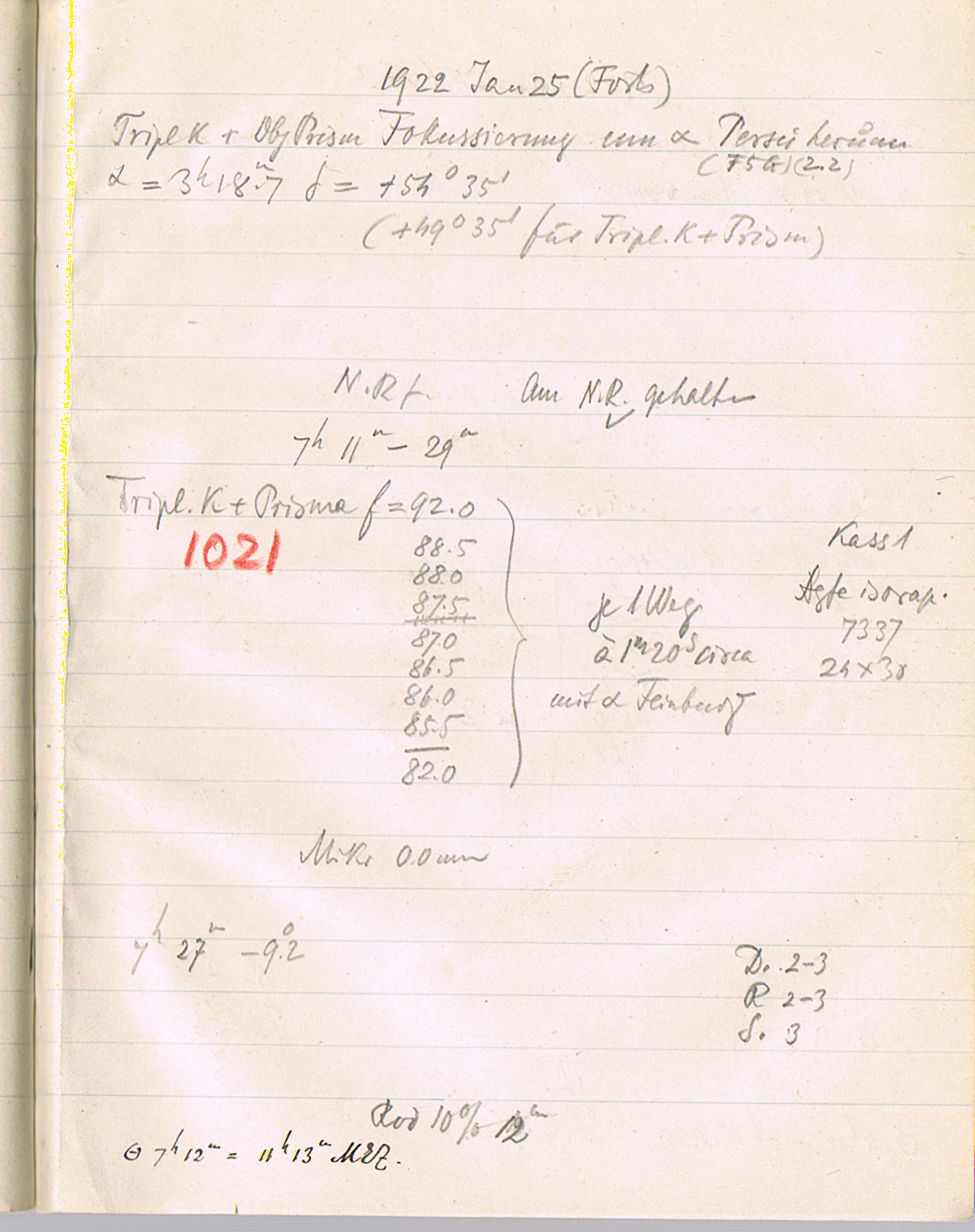 1922 Jan 25 (Forts)
Tripl K + Obj Prism Fokussierung um α Persei herum
(F5G) (2.2)
α = 3h 18m.7 δ = +54° 35'
(+49° 35' für Tripl. K + Prism)
N. R f. Am N.R. gehalten
7h 11m – 29m
Tripl. K + Prisma f = 92.0
1021
88.5
88.0
87.5
87.0
86.5
86.0
85.5
82.0
je 1 Weg
à 1m 20s circa
mit α Feinbewg
Kass 1
Agfa isorap.
7337
24 x 30
Mikr 0.0 mm
7h 27m –9°.2
D. 2–3
R 2–3
S. 3
Rod 10% 12m
Θ 7h 12m = 11h 13m MEZ.